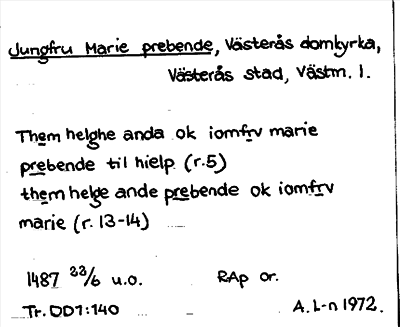 Jungfru Marie prebende, Västerås domkyrka,
Västerås stad, Västm. l.
Them helghe anda ok iomfrv marie
prebende til hielp (r.5)
them helge ande prebende ok iomfrv
marie (r. 13-14)
1487 23/6 u.o. RAp or.
Tr. DD1:140 A. L-n 1972.